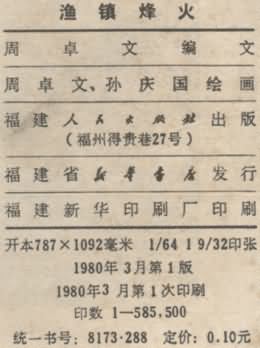 渔镇烽火
周卓文编文
周卓文、孙庆国绘画
福建人民出版社出版
(福州得贵巷27号)
福建省新华书店发行
福建新华印刷厂印刷
开本787×1092毫米 1/64 1 9/32印张
1980年3月第1版
1980年3月第1次印刷
印数 1—585,500
统一书号:8173·288 定价:0.10元